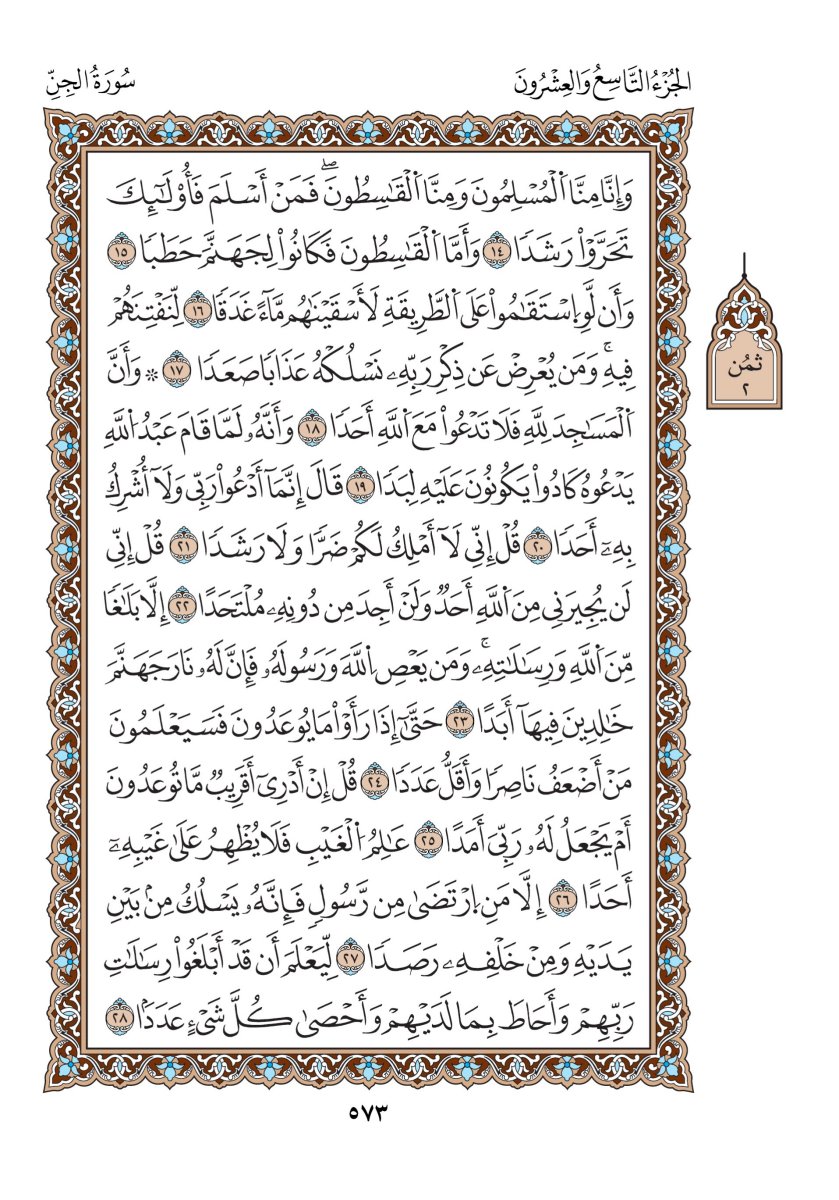 الجُزْءُ التَّاسِعُ وَالعِشْرُونَ
سُورَةُ الجِنِّ
وَإِنَّا مِنَّا اَ۬لْمُسْلِمُونَ وَمِنَّا اَ۬لْقَٰسِطُونَۖ فَمَنْ أَسْلَمَ فَأُوْلَٰٓئِكَ
تَحَرَّوْاْ رَشَدٗا ١٤ وَأَمَّا اَ۬لْقَٰسِطُونَ فَكَانُواْ لِجَهَنَّمَ حَطَبٗا ١٥
وَأَن لَّوِ اِ۪سْتَقَٰمُواْ عَلَى اَ۬لطَّرِيقَةِ لَأَسْقَيْنَٰهُم مَّآءً غَدَقٗا ١٦ لِّنَفْتِنَهُمْ
فِيهِۚ وَمَن يُعْرِضْ عَن ذِكْرِ رَبِّهِۦ نَسْلُكْهُ عَذَابٗا صَعَدٗا ١٧ ۞ وَأَنَّ
اَ۬لْمَسَٰجِدَ لِلَّهِ فَلَا تَدْعُواْ مَعَ اَ۬للَّهِ أَحَدٗا ١٨ وَأَنَّهُۥ لَمَّا قَامَ عَبْدُ اُ۬للَّهِ
يَدْعُوهُ كَادُواْ يَكُونُونَ عَلَيْهِ لِبَدٗا ١٩ قَالَ إِنَّمَآ أَدْعُواْ رَبِّي وَلَآ أُشْرِكُ
بِهِۦٓ أَحَدٗا ٢٠ قُلْ إِنِّي لَآ أَمْلِكُ لَكُمْ ضَرّٗا وَلَا رَشَدٗا ٢١ قُلْ إِنِّي
لَن يُجِيرَنِي مِنَ اَ۬للَّهِ أَحَدٞ وَلَنْ أَجِدَ مِن دُونِهِۦ مُلْتَحَدًا ٢٢ إِلَّا بَلَٰغٗا
مِّنَ اَ۬للَّهِ وَرِسَٰلَٰتِهِۦۚ وَمَن يَعْصِ اِ۬للَّهَ وَرَسُولَهُۥ فَإِنَّ لَهُۥ نَارَ جَهَنَّمَ
خَٰلِدِينَ فِيهَآ أَبَدًا ٢٣ حَتَّىٰٓ إِذَا رَأَوْاْ مَا يُوعَدُونَ فَسَيَعْلَمُونَ
مَنْ أَضْعَفُ نَاصِرٗا وَأَقَلُّ عَدَدٗا ٢٤ قُلْ إِنْ أَدْرِيٓ أَقَرِيبٞ مَّا تُوعَدُونَ
أَمْ يَجْعَلُ لَهُۥ رَبِّيَ أَمَدًا ٢٥ عَٰلِمُ اُ۬لْغَيْبِ فَلَا يُظْهِرُ عَلَىٰ غَيْبِهِۦٓ
أَحَدًا ٢٦ إِلَّا مَنِ اِ۪رْتَضَىٰ مِن رَّسُولٖ فَإِنَّهُۥ يَسْلُكُ مِنۢ بَيْنِ
يَدَيْهِ وَمِنْ خَلْفِهِۦ رَصَدٗا ٢٧ لِّيَعْلَمَ أَن قَدْ أَبْلَغُواْ رِسَٰلَٰتِ
رَبِّهِمْ وَأَحَاطَ بِمَا لَدَيْهِمْ وَأَحْصَىٰ كُلَّ شَيْءٍ عَدَدَۢا ٢٨
ثُمُن
٢
٥٧٣